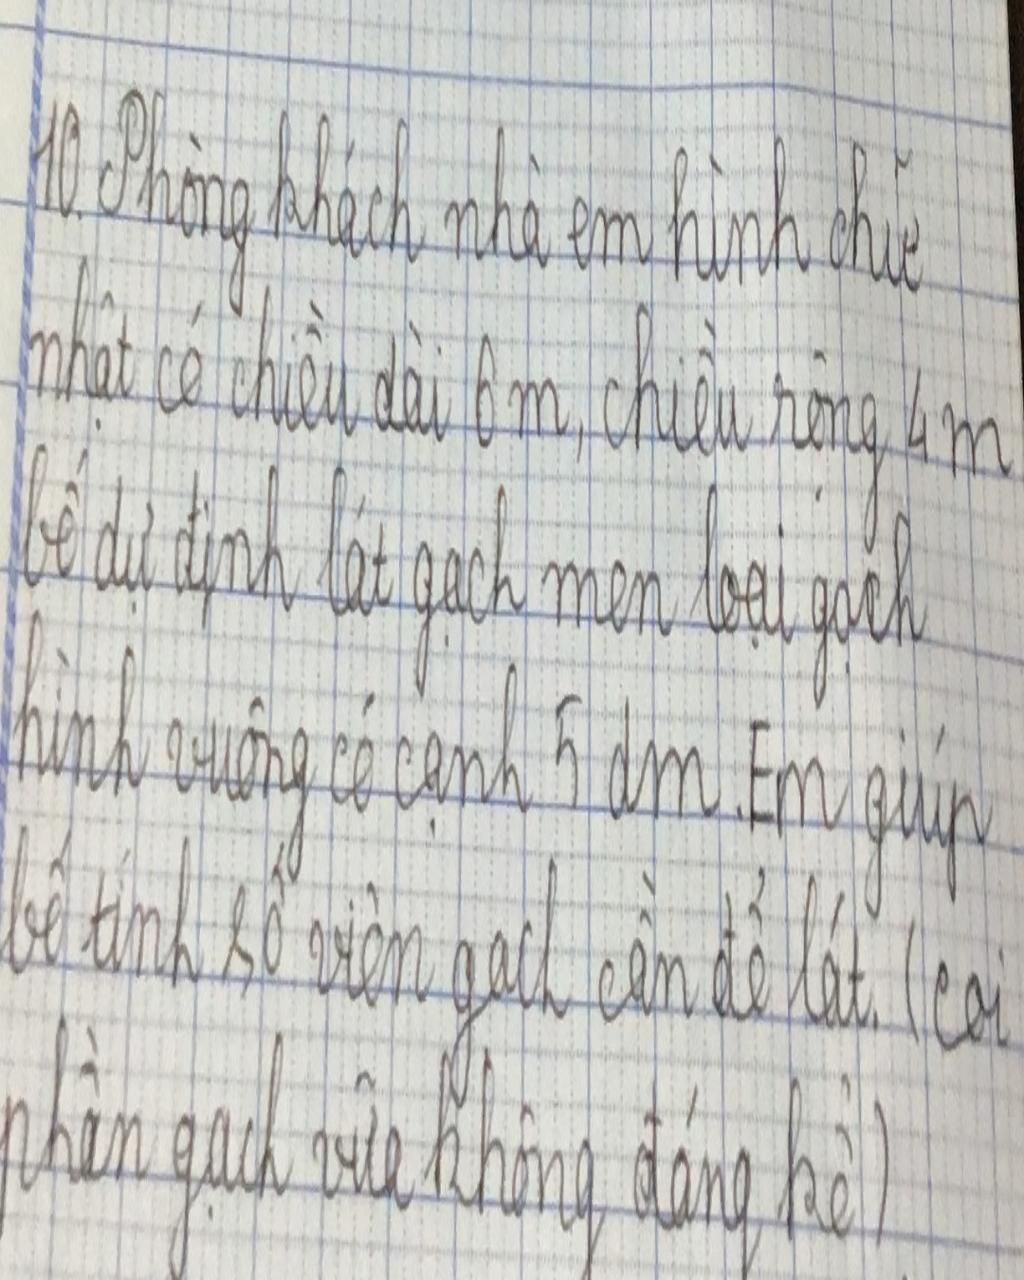 10. Phòng khách nhà em hình chữ
nhật có chiều dài 6 m, chiều rộng 4 m
bố dự định lát gạch men loại gạch
hình vuông có cạnh 5 dm. Em giúp
bố tính số viên gạch cần để lát. (coi
phần gạch vữa không đáng kể)